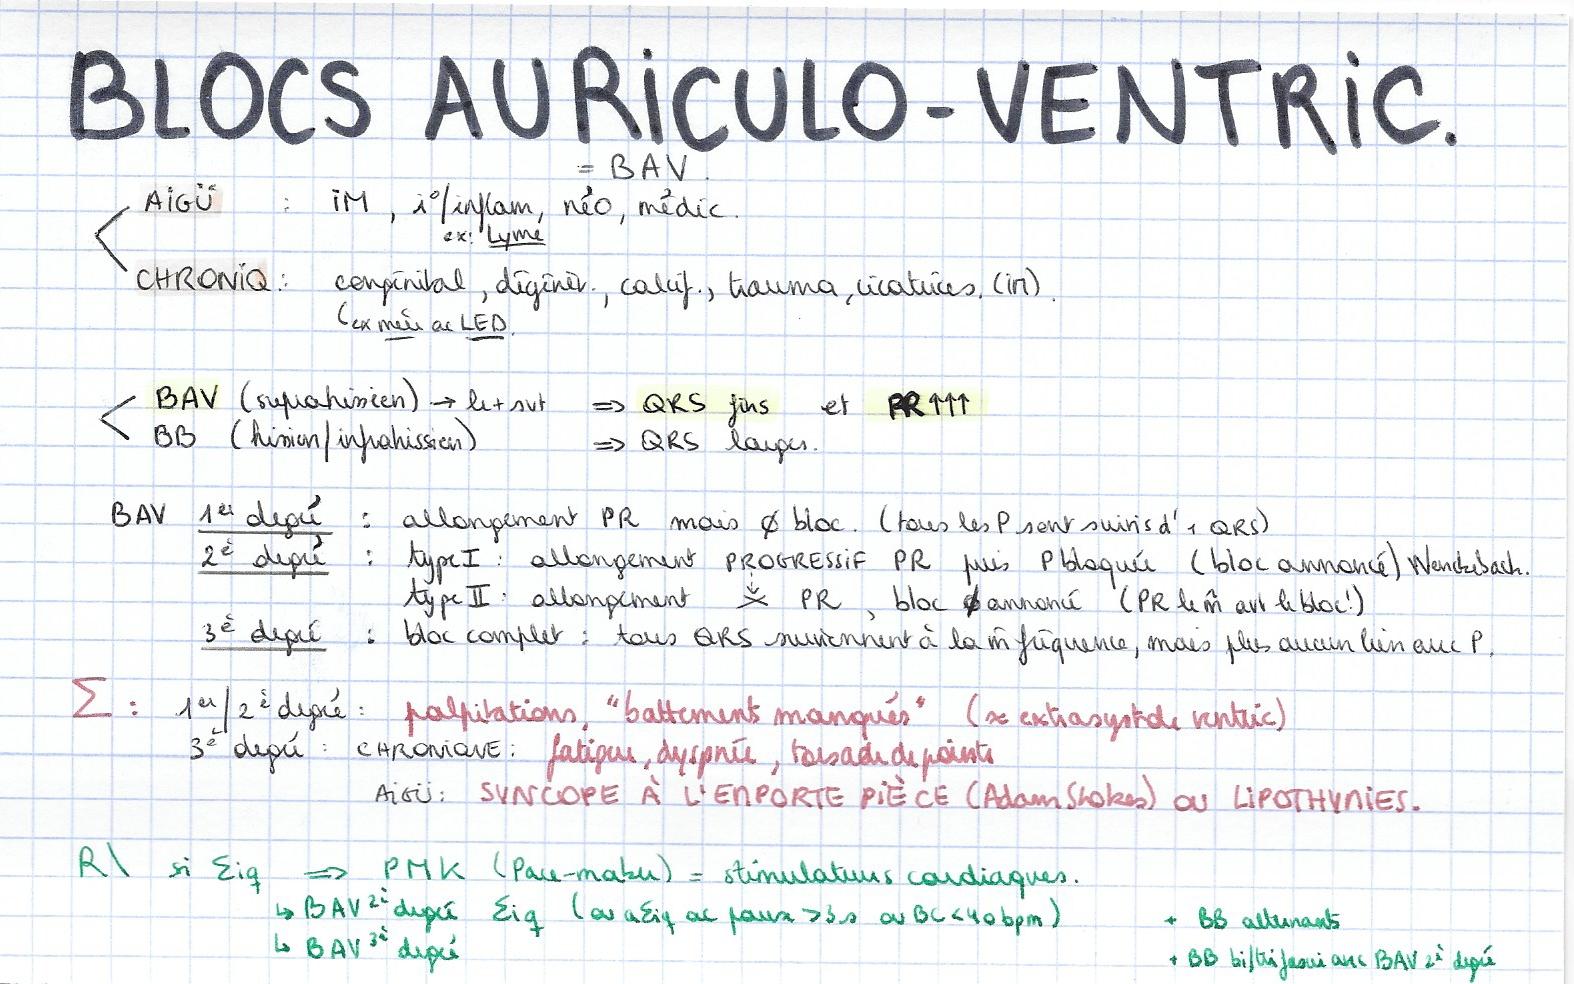 BLOCS AURICULO-VENTRIC.
= BAV.
AIGÜ : IM, i°/inflam, néo, médic.
ex: Lyme
CHRONIQ: congénital, dégénér., calcif., trauma, cicatrices, (IM).
(ex mère ac LED.
BAV (suprahissien) → le + svt ⇒ QRS fins et PR↑↑↑
BB (hissien/infrahissien) ⇒ QRS larges.
BAV 1er degré : allongement PR mais ∅ bloc. (tous les P sont suivis d'1 QRS)
2è degré : type I : allongement PROGRESSIF PR puis P bloquée (bloc annoncé) Wenckebach.
type II : allongement PR, bloc ∅ annoncé (PR le m̂ avt le bloc!)
3è degré : bloc complet : tous QRS surviennent à la m̂ fréquence, mais plus aucun lien avec P.
Σ : 1er/2è degré : palpitations, "battement manqués" (≈ extrasystole ventric)
3è degré : CHRONIQUE : fatigue, dyspnée, torsade de pointes
AIGÜ : SYNCOPE À L'EMPORTE PIÈCE (Adam Stokes) OU LIPOTHYMIES.
R\ si Σiq ⇒ PMK (Pace-maker) = stimulateurs cardiaques.
↳ BAV 2è degré Σiq (ou aΣiq ac pause >3s ou BC<40bpm) + BB alternants
↳ BAV 3è degré + BB bi/trifasci avec BAV 2è degré